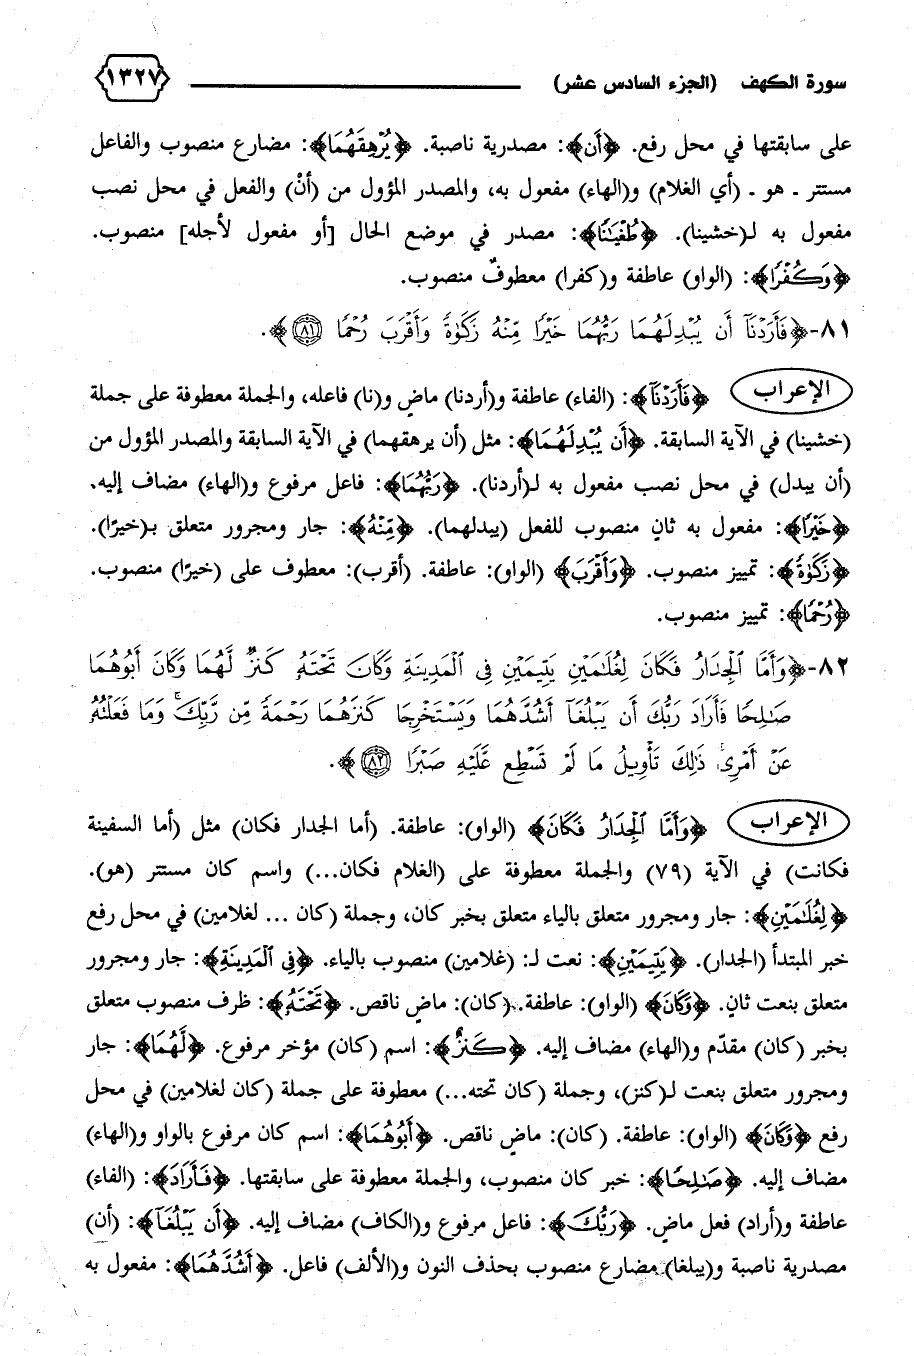 سورة الكهف (الجزء السادس عشر) ١٣٢٧
على سابقتها في محل رفع. ﴿أَن﴾: مصدرية ناصبة. ﴿يُرْهِقَهُمَا﴾: مضارع منصوب والفاعل
مستتر - هو - (أي الغلام) و(الهاء) مفعول به، والمصدر المؤول من (أنْ) والفعل في محل نصب
مفعول به لـ(خشينا). ﴿طُغْيَٰنًا﴾: مصدر في موضع الحال [أو مفعول لأجله] منصوب.
﴿وَكُفْرًا﴾: (الواو) عاطفة و(كفرا) معطوفٌ منصوب.
٨١-﴿فَأَرَدْنَآ أَن يُبْدِلَهُمَا رَبُّهُمَا خَيْرًا مِّنْهُ زَكَوٰةً وَأَقْرَبَ رُحْمًا ٨١﴾.
الإعراب ﴿فَأَرَدْنَآ﴾: (الفاء) عاطفة و(أردنا) ماضٍ و(نا) فاعله، والجملة معطوفة على جملة
(خشينا) في الآية السابقة. ﴿أَن يُبْدِلَهُمَا﴾: مثل (أن يرهقهما) في الآية السابقة والمصدر المؤول من
(أن يبدل) في محل نصب مفعول به لـ(أردنا). ﴿رَبُّهُمَا﴾: فاعل مرفوع و(الهاء) مضاف إليه.
﴿خَيْرًا﴾: مفعول به ثانٍ منصوب للفعل (يبدلهما). ﴿مِّنْهُ﴾: جار ومجرور متعلق بـ(خيرًا).
﴿زَكَوٰةً﴾: تمييز منصوب. ﴿وَأَقْرَبَ﴾ (الواو): عاطفة. (أقرب): معطوف على (خيرًا) منصوب.
﴿رُحْمًا﴾: تمييز منصوب.
٨٢-﴿وَأَمَّا ٱلْجِدَارُ فَكَانَ لِغُلَٰمَيْنِ يَتِيمَيْنِ فِى ٱلْمَدِينَةِ وَكَانَ تَحْتَهُۥ كَنزٌ لَّهُمَا وَكَانَ أَبُوهُمَا
صَٰلِحًا فَأَرَادَ رَبُّكَ أَن يَبْلُغَآ أَشُدَّهُمَا وَيَسْتَخْرِجَا كَنزَهُمَا رَحْمَةً مِّن رَّبِّكَ ۚ وَمَا فَعَلْتُهُۥ
عَنْ أَمْرِى ۚ ذَٰلِكَ تَأْوِيلُ مَا لَمْ تَسْطِع عَّلَيْهِ صَبْرًا ٨٢﴾.
الإعراب ﴿وَأَمَّا ٱلْجِدَارُ فَكَانَ﴾ (الواو): عاطفة. (أما الجدار فكان) مثل (أما السفينة
فكانت) في الآية (٧٩) والجملة معطوفة على (الغلام فكان...) واسم كان مستتر (هو).
﴿لِغُلَٰمَيْنِ﴾: جار ومجرور متعلق بالياء متعلق بخبر كان، وجملة (كان ... لغلامين) في محل رفع
خبر المبتدأ (الجدار). ﴿يَتِيمَيْنِ﴾: نعت لـ: (غلامين) منصوب بالياء. ﴿فِى ٱلْمَدِينَةِ﴾: جار ومجرور
متعلق بنعت ثانٍ. ﴿وَكَانَ﴾ (الواو): عاطفة. (كان): ماضٍ ناقص. ﴿تَحْتَهُۥ﴾: ظرف منصوب متعلق
بخبر (كان) مقدّم و(الهاء) مضاف إليه. ﴿كَنزٌ﴾: اسم (كان) مؤخر مرفوع. ﴿لَّهُمَا﴾: جار
ومجرور متعلق بنعت لـ(كنز)، وجملة (كان تحته...) معطوفة على جملة (كان لغلامين) في محل
رفع ﴿وَكَانَ﴾ (الواو): عاطفة. (كان): ماضٍ ناقص. ﴿أَبُوهُمَا﴾: اسم كان مرفوع بالواو و(الهاء)
مضاف إليه. ﴿صَٰلِحًا﴾: خبر كان منصوب، والجملة معطوفة على سابقتها. ﴿فَأَرَادَ﴾: (الفاء)
عاطفة و(أراد) فعل ماضٍ. ﴿رَبُّكَ﴾: فاعل مرفوع و(الكاف) مضاف إليه. ﴿أَن يَبْلُغَآ﴾: (أن)
مصدرية ناصبة و(يبلغا) مضارع منصوب بحذف النون و(الألف) فاعل. ﴿أَشُدَّهُمَا﴾: مفعول به